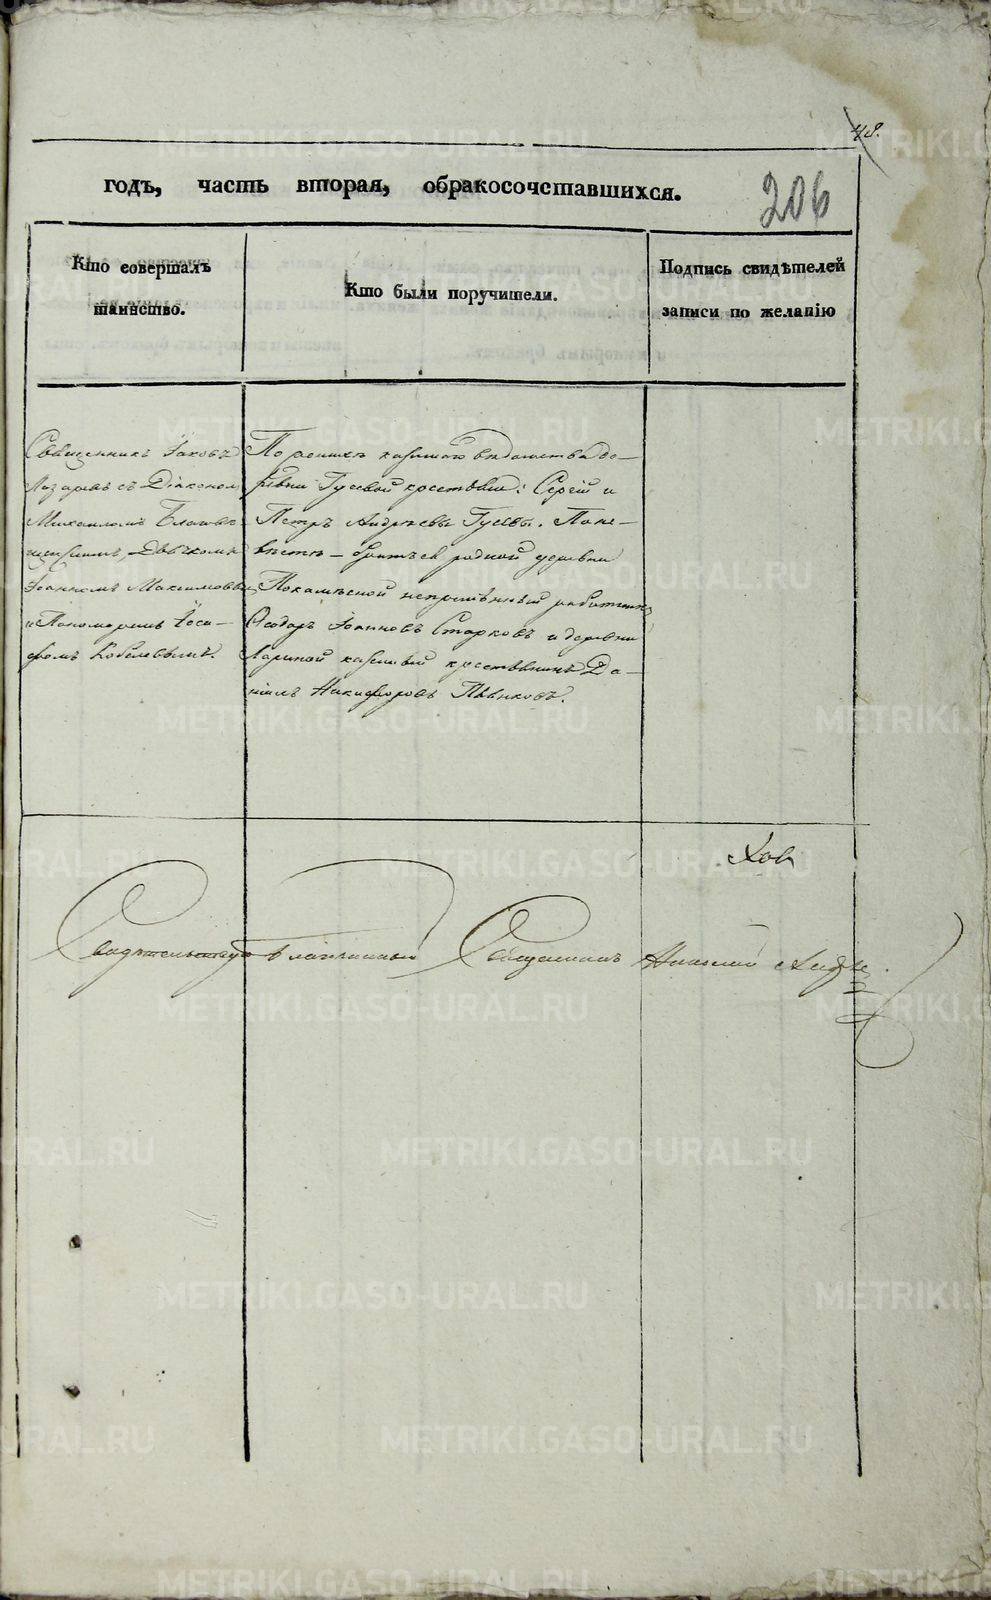 48.
206
годъ, часть вторая, обракосочетавшихся.
Кто совершалъ
таинство.
Кто были поручители.
Подпись свидѣтелей
записи по желанію
Священникъ Іаковъ
Лазаревъ съ Діакономъ
Михаиломъ Благовѣ-
щенскимъ, Дьячкомъ
Іоанномъ Максимовы
и Пономаремъ Іоси-
фомъ Кобелевымъ.
По женихѣ казеннаго вѣдомства де-
ревни Гусевой крестьяне: Сергій и
Петръ Андреевы Гусевы. По не-
вѣстѣ – братъ ея родной деревни
Покамѣсной непремѣнный работникъ
Ѳеодоръ Іоанновъ Старковъ и деревни
Лариной казенный крестьянинъ Да-
ніилъ Никифоровъ Пьянковъ.
Свидѣтельствую Благочинный Священникъ
METRIKI.GASO-URAL.RU